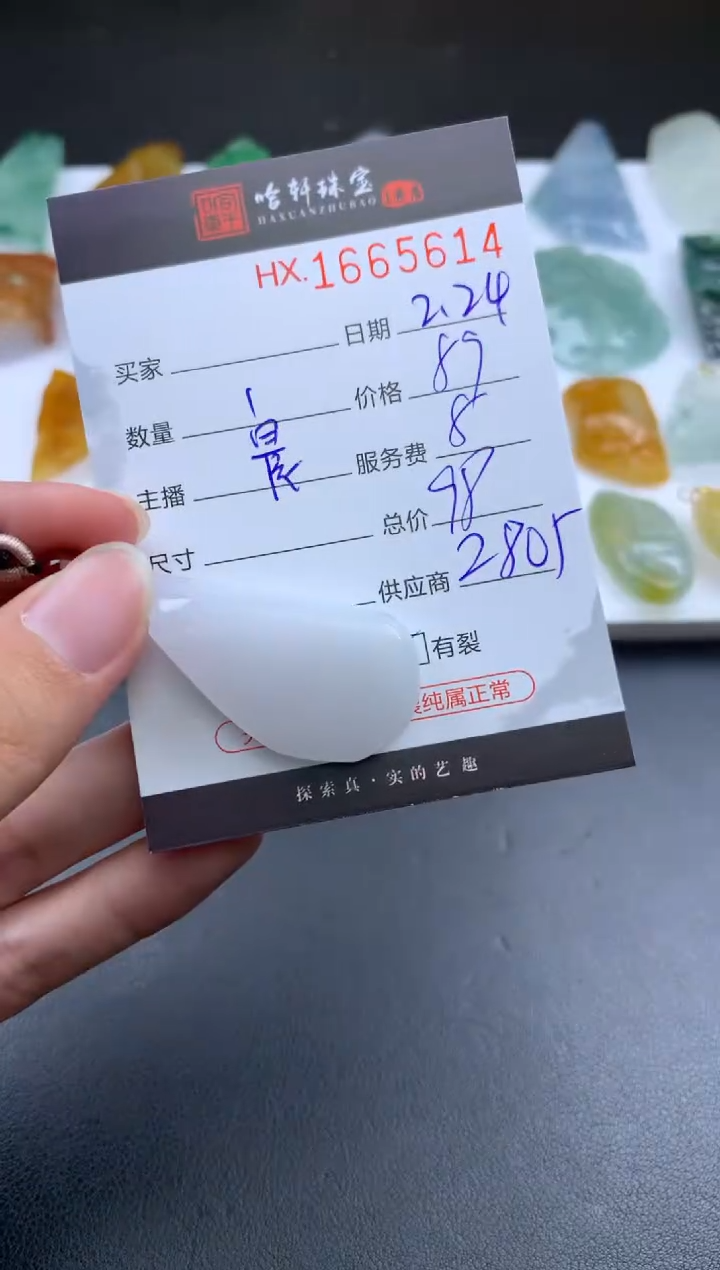 哈轩珠宝
HAXUANZHUBAO
HX.1665614
买家 日期 2.24
数量 1 价格 89
主播 晨 服务费 8
尺寸 总价 98
供应商 2805
有裂
纯属正常
探索真·实的艺趣